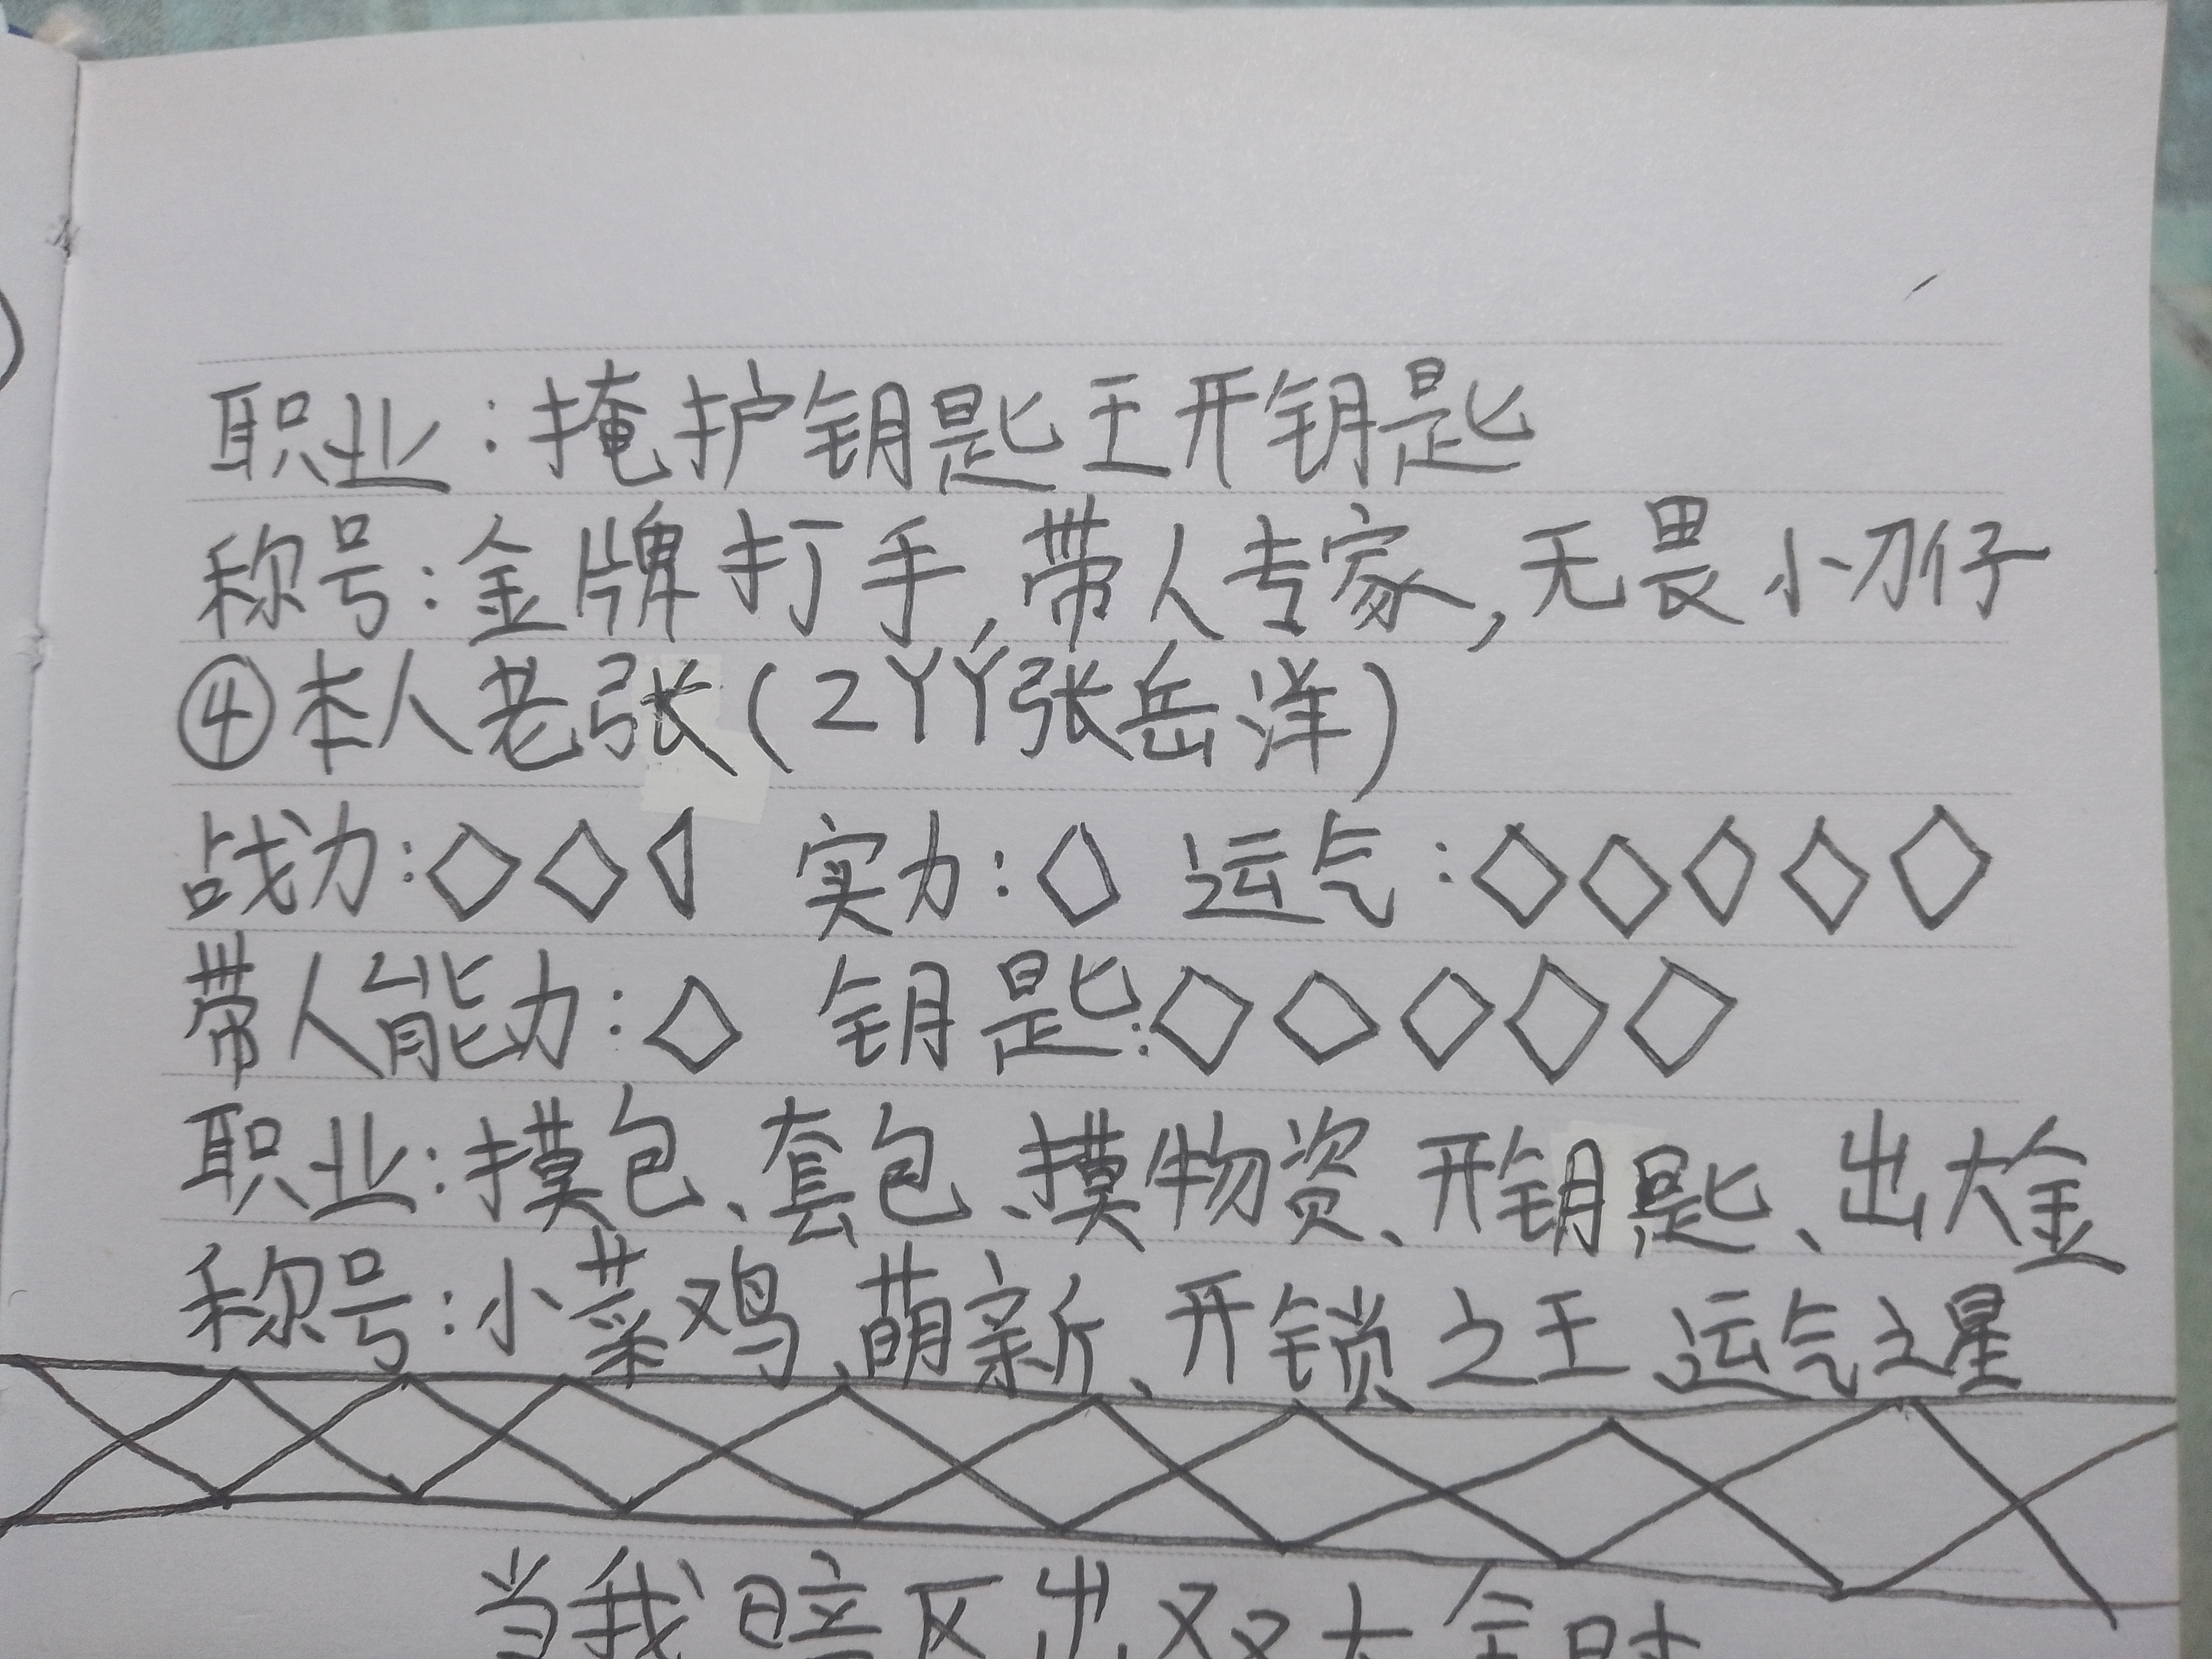 职业:掩护钥匙王开钥匙
称号:金牌打手,带人专家,无畏小刀仔
④本人老张(ZYY张岳洋)
战力:◇◇ 实力:◇ 运气:◇◇◇◇◇
带人能力:◇ 钥匙:◇◇◇◇◇
职业:摸包、套包、摸物资、开钥匙、出大金
称号:小菜鸡、萌新、开锁之王、运气之星
当我暗区出双大金时